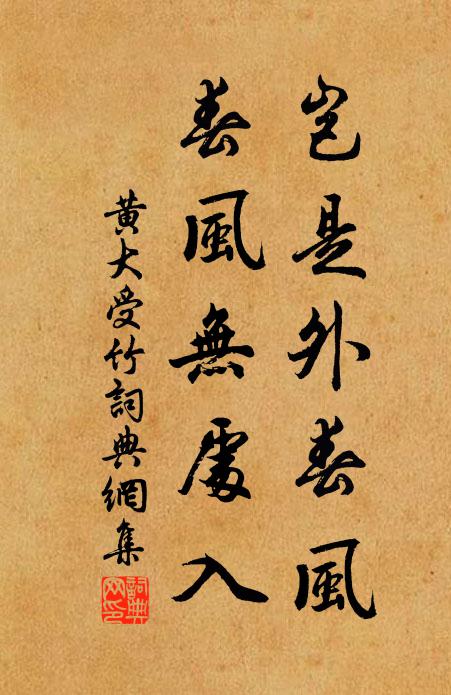 豈是外春風
春風無處入
黃大受竹詞典網集
詞典
网印